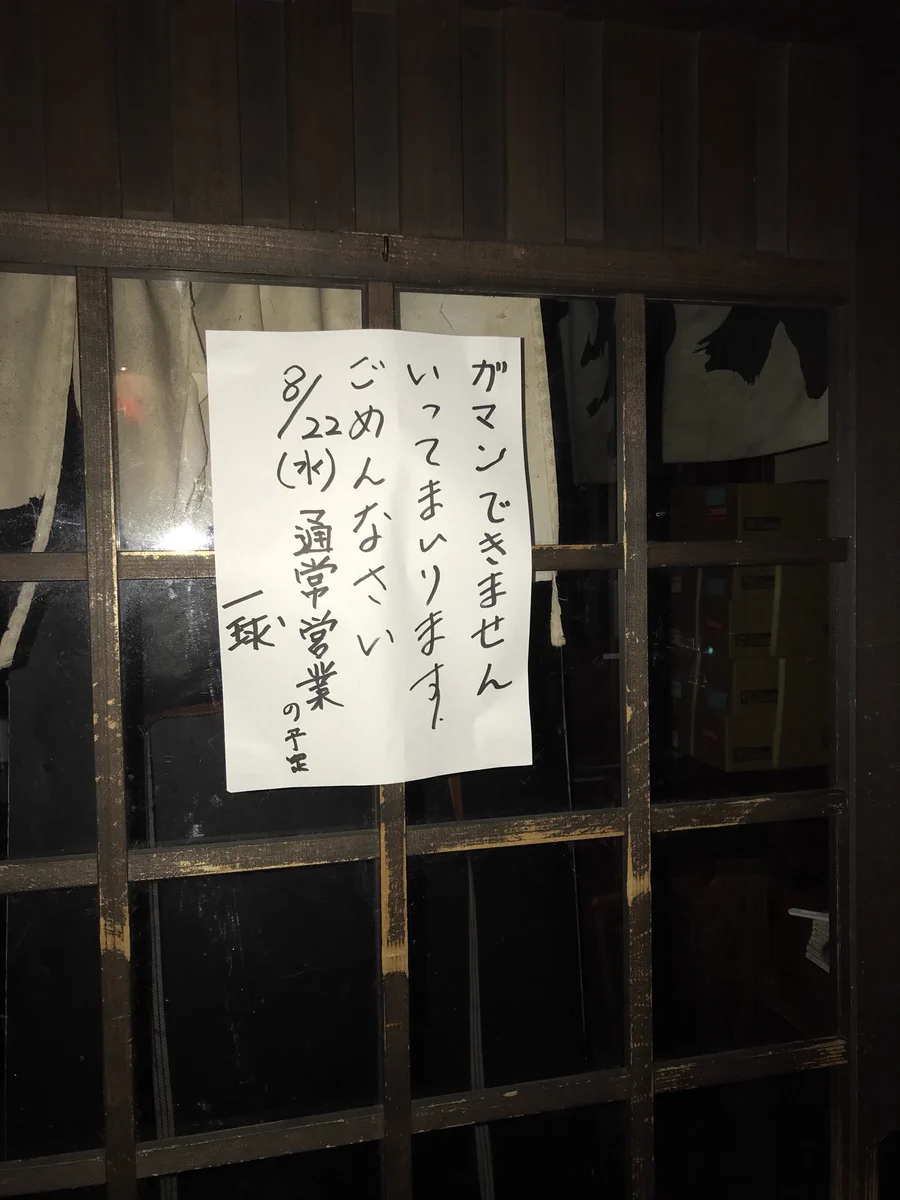 ガマンできません
いってまいります。
ごめんなさい
8/22(水)通常営業の予定
一球